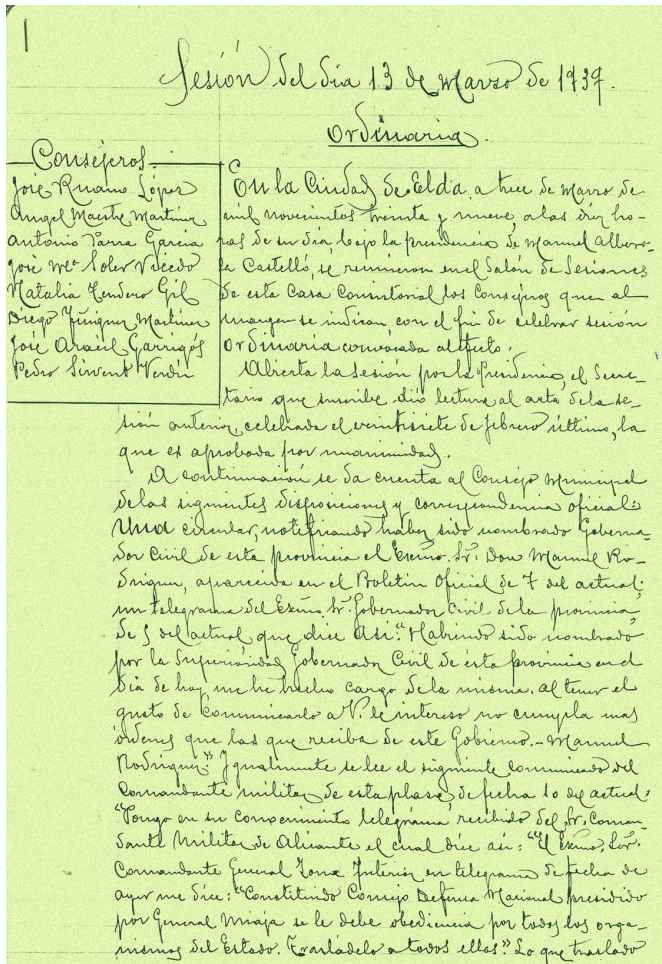 Sesión del dia 13 de Marzo de 1939.
Ordinaria.
Consejeros
José Ruano López
Angel Maestre Martinez
Antonio Parra Garcia
José Mª Soler Vicedo
Natalia Tendero Gil
Diego Iñiguez Martinez
José Aracil Garrigós
Pedro Sirvent Verdú
En la Ciudad de Elda, a trece de Marzo de
mil novecientos treinta y nueve, a las diez ho-
ras de su dia, bajo la presidencia de Manuel Albero-
la Castelló, se reunieron en el Salón de Sesiones
de esta Casa Consistorial los Consejeros que al
margen se indican, con el fin de celebrar sesión
ordinaria convocada al efecto.
Abierta la Sesión por la Presidencia, el Secre-
tario que suscribe dió lectura al acta de la se-
sión anterior, celebrada el veintisiete de febrero último, la
que es aprobada por unanimidad.
A continuación se da cuenta al Consejo Municipal
de las siguientes disposiciones y correspondencia oficial:
Una circular, notificando haber sido nombrado Goberna-
dor Civil de esta provincia el Excmo. Sr. Don Manuel Ro-
driguez, aparecida en el Boletin Oficial de 7 del actual;
un telegrama del Excmo. Sr. Gobernador Civil de la provincia,
de 5 del actual que dice asi: "Habiendo sido nombrado
por la Superioridad Gobernador Civil de esta provincia en el
dia de hoy me he hecho cargo de la misma. Al tener el
gusto de comunicarlo a V. le intereso no cumpla mas
órdenes que las que reciba de este Gobierno.- Manuel
Rodriguez." Igualmente se lee el siguiente comunicado del
Comandante militar de esta plaza, de fecha 10 del actual:
"Pongo en su conocimiento telegrama recibido del Sr. Coman-
dante Militar de Alicante el cual dice asi: "El Excmo. Sr.
Comandante General Zona Interior en telegrama de fecha de
ayer me dice: "Constituido Consejo Defensa Nacional presidido
por General Miaja se le debe obediencia por todos los orga-
nismos del Estado. Trasládelo a todos ellos." Lo que traslado